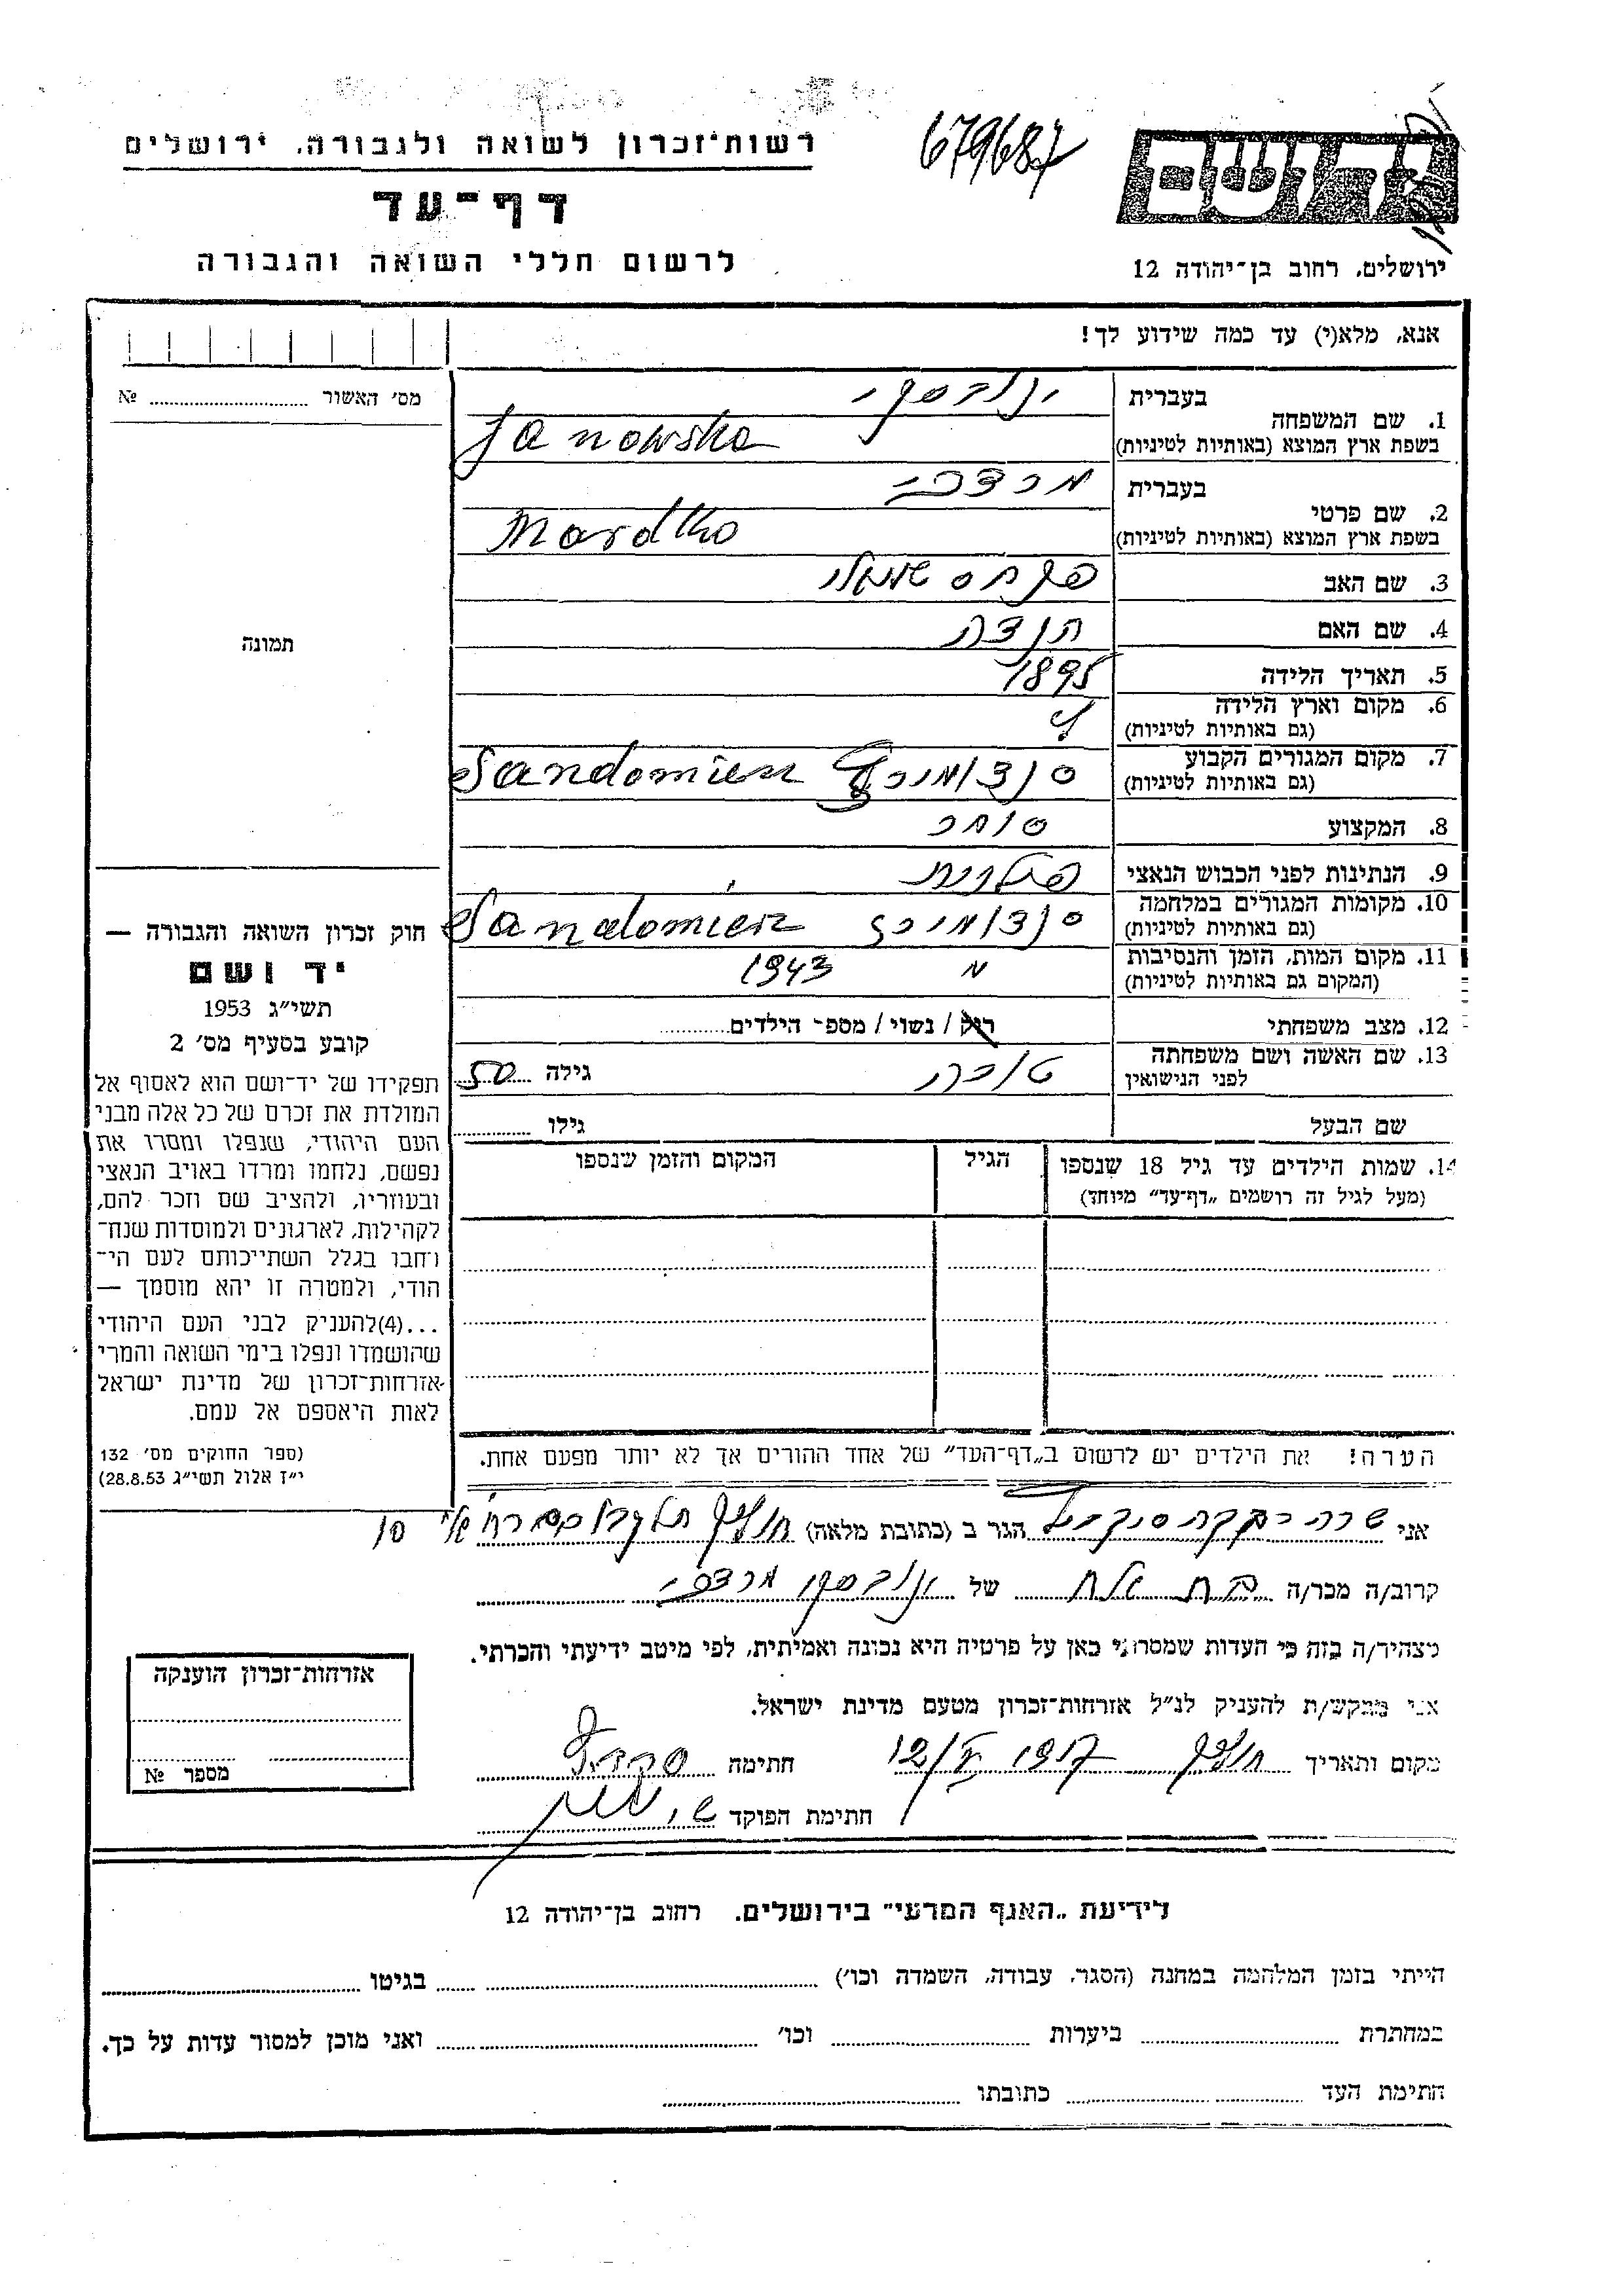 רשות־זכרון לשואה ולגבורה, ירושלים
679687
דף־עד
לרשום חללי השואה והגבורה
ירושלים, רחוב בן־יהודה 12
אנא, מלא(י) עד כמה שידוע לך!
מס' האשור № ..........
תמונה
1. שם המשפחה
בעברית ינובסקי
בשפת ארץ המוצא (באותיות לטיניות) Janowska
2. שם פרטי
בעברית מרדכי
בשפת ארץ המוצא (באותיות לטיניות) Mordko
3. שם האב
4. שם האם הנדה
5. תאריך הלידה 1895
6. מקום וארץ הלידה
(גם באותיות לטיניות)
7. מקום המגורים הקבוע סנדומירז Sandomierz
(גם באותיות לטיניות)
8. המקצוע סוחר
9. הנתינות לפני הכבוש הנאצי פולנית
10. מקומות המגורים במלחמה סנדומירז Sandomierz
(גם באותיות לטיניות)
11. מקום המות, הזמן והנסיבות 1943
(המקום גם באותיות לטיניות)
12. מצב משפחתי רוק / נשוי / מספר הילדים..........
13. שם האשה ושם משפחתה טוברה גילה 50
לפני הנישואין
שם הבעל גילו ..........
14. שמות הילדים עד גיל 18 שנספו הגיל המקום והזמן שנספו
(מעל לגיל זה רושמים „דף־עד” מיוחד)
הערה! את הילדים יש לרשום ב„דף־העד” של אחד ההורים אך לא יותר מפעם אחת.
חוק זכרון השואה והגבורה —
יד ושם
תשי״ג 1953
קובע בסעיף מס' 2
תפקידו של יד־ושם הוא לאסוף אל
המולדת את זכרם של כל אלה מבני
העם היהודי, שנפלו ומסרו את
נפשם, נלחמו ומרדו באויב הנאצי
ובעוזריו, ולהציב שם וזכר להם,
לקהילות, לארגונים ולמוסדות שנח־
רחבו בגלל השתייכותם לעם הי־
הודי, ולמטרה זו יהא מוסמך —
...(4)להעניק לבני העם היהודי
שהושמדו ונפלו בימי השואה והמרי
אזרחות־זכרון של מדינת ישראל
לאות היאספם אל עמם.
(ספר החוקים מס' 132
י״ז אלול תשי״ג 28.8.53)
אני שרה רבקה הגר ב (כתובת מלאה) חולון
קרוב/ה מכר/ה של ינובסקי מרדכי
מצהיר/ה בזה כי העדות שמסרתי כאן על פרטיה היא נכונה ואמיתית, לפי מיטב ידיעתי והכרתי.
אני מבקש/ת להעניק לנ״ל אזרחות־זכרון מטעם מדינת ישראל.
מקום ותאריך חולון חתימה
חתימת הפוקד
אזרחות־זכרון הוענקה
מספר №
לידיעת „האגף המדעי” בירושלים, רחוב בן־יהודה 12
הייתי בזמן המלחמה במחנה (הסגר, עבודה, השמדה וכו') .......... בגיטו ..........
במחתרת .......... ביערות .......... וכו' .......... ואני מוכן למסור עדות על כך.
חתימת העד .......... כתובתו ..........